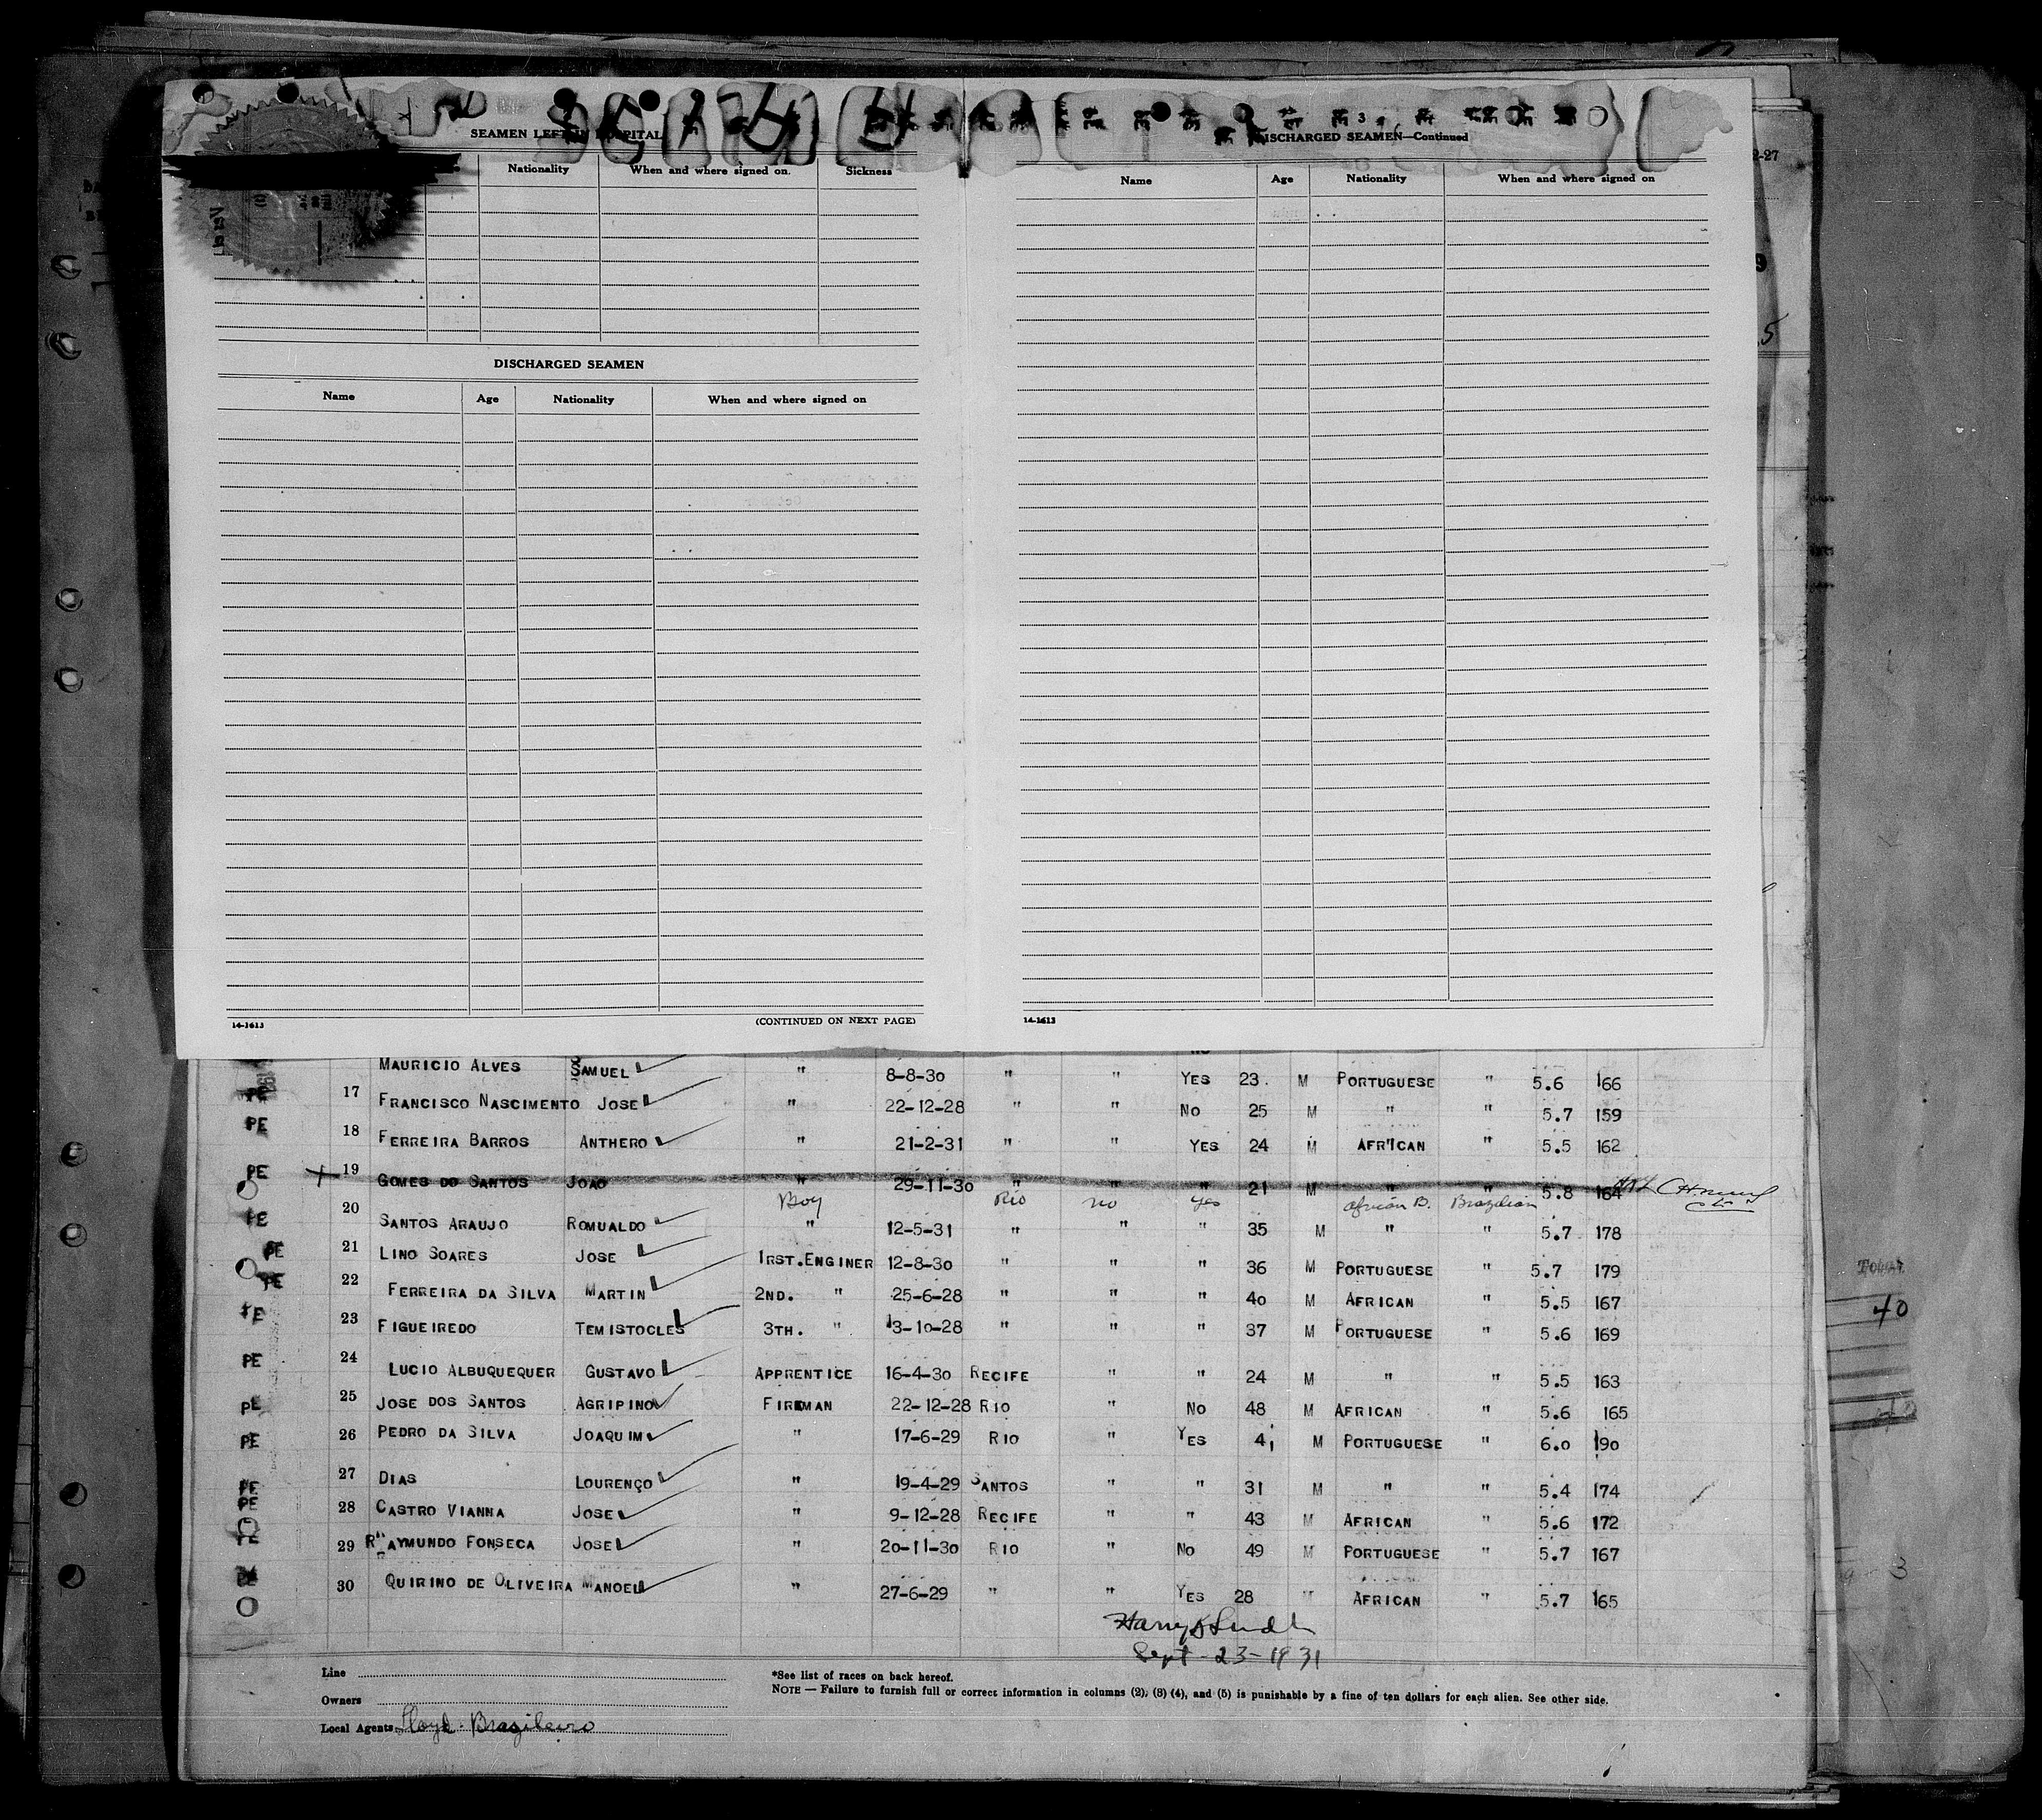 SEAMEN LEFT IN HOSPITAL
Nationality When and where signed on. Sickness
DISCHARGED SEAMEN
Name Age Nationality When and where signed on
14-1613 (CONTINUED ON NEXT PAGE)
3
DISCHARGED SEAMEN—Continued
Name Age Nationality When and where signed on
14-1613
MAURICIO ALVES SAMUEL " 8-8-30 " " YES 23. M PORTUGUESE " 5.6 166
PE 17 FRANCISCO NASCIMENTO JOSE " 22-12-28 " " NO 25 M " " 5.7 159
PE 18 FERREIRA BARROS ANTHERO " 21-2-31 " " YES 24 M AFRICAN " 5.5 162
PE 19 GOMES DO SANTOS JOAO " 29-11-30 " " " 21 M " " 5.8 164
Boy Rio no yes African B. Brazilian
PE 20 SANTOS ARAUJO ROMUALDO " 12-5-31 " " " 35 M " " 5.7 178
PE 21 LINO SOARES JOSE 1RST.ENGINER 12-8-30 " " " 36 M PORTUGUESE " 5.7 179
PE 22 FERREIRA DA SILVA MARTIN 2ND. " 25-6-28 " " " 40 M AFRICAN " 5.5 167
PE 23 FIGUEIREDO TEMISTOCLES 3TH. " 13-10-28 " " " 37 M PORTUGUESE " 5.6 169
PE 24 LUCIO ALBUQUEQUER GUSTAVO APPRENTICE 16-4-30 RECIFE " " 24 M " " 5.5 163
PE 25 JOSE DOS SANTOS AGRIPINO FIREMAN 22-12-28 RIO " NO 48 M AFRICAN " 5.6 165
PE 26 PEDRO DA SILVA JOAQUIM " 17-6-29 RIO " YES 41 M PORTUGUESE " 6.0 190
PE 27 DIAS LOURENÇO " 19-4-29 SANTOS " " 31 M " " 5.4 174
PE 28 CASTRO VIANNA JOSE " 9-12-28 RECIFE " " 43 M AFRICAN " 5.6 172
PE 29 RAYMUNDO FONSECA JOSE " 20-11-30 RIO " NO 49 M PORTUGUESE " 5.7 167
PE 30 QUIRINO DE OLIVEIRA MANOEL " 27-6-29 " " YES 28 " AFRICAN " 5.7 165
Sept-23-1931
Line
Owners
Local Agents Lloyd Brazileiro
*See list of races on back hereof.
NOTE — Failure to furnish full or correct information in columns (2), (3) (4), and (5) is punishable by a fine of ten dollars for each alien. See other side.
2-27
9
5
40
3